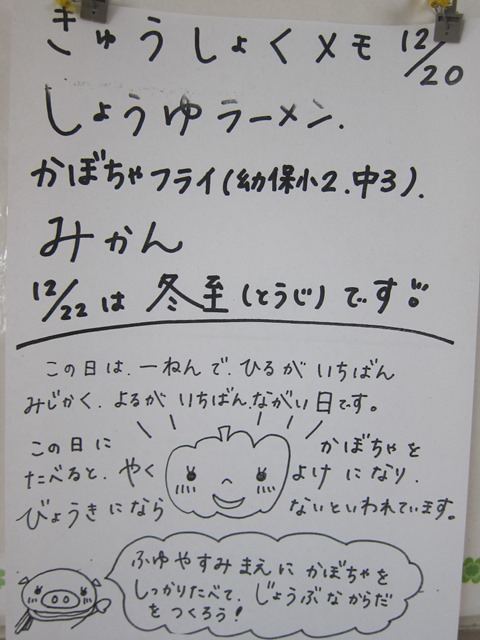 きゅうしょくメモ 12/20
しょうゆラーメン.
かぼちゃフライ(幼保小2.中3).
みかん
12/22は 冬至(とうじ)です!!
この日は.一ねんで.ひるが いちばん
みじかく.よるが いちばん.ながい日です。
この日に かぼちゃを
たべると.やくよけになり.
びょうきにならないといわれています。
ふゆやすみまえに かぼちゃを
しっかりたべて.じょうぶなからだ
をつくろう!